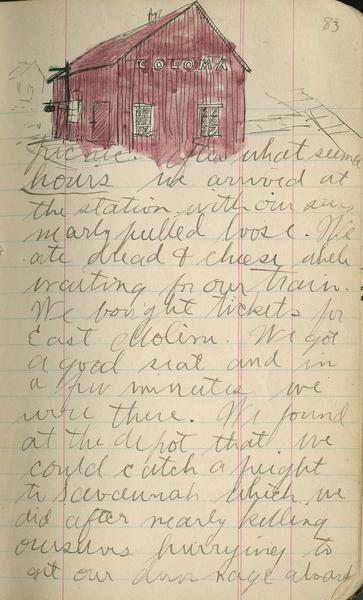 83
COLOMA
picnic. After what seemed
hours we arrived at
the station with our arms
nearly pulled loose. We
ate bread & cheese while
waiting for our train.
We bought tickets for
East Moline. We got
a good seat and in
a few minutes we
were there. We found
at the depot that we
could catch a freight
to Savannah which we
did after nearly killing
ourselves hurrying to
get our dunnage aboard